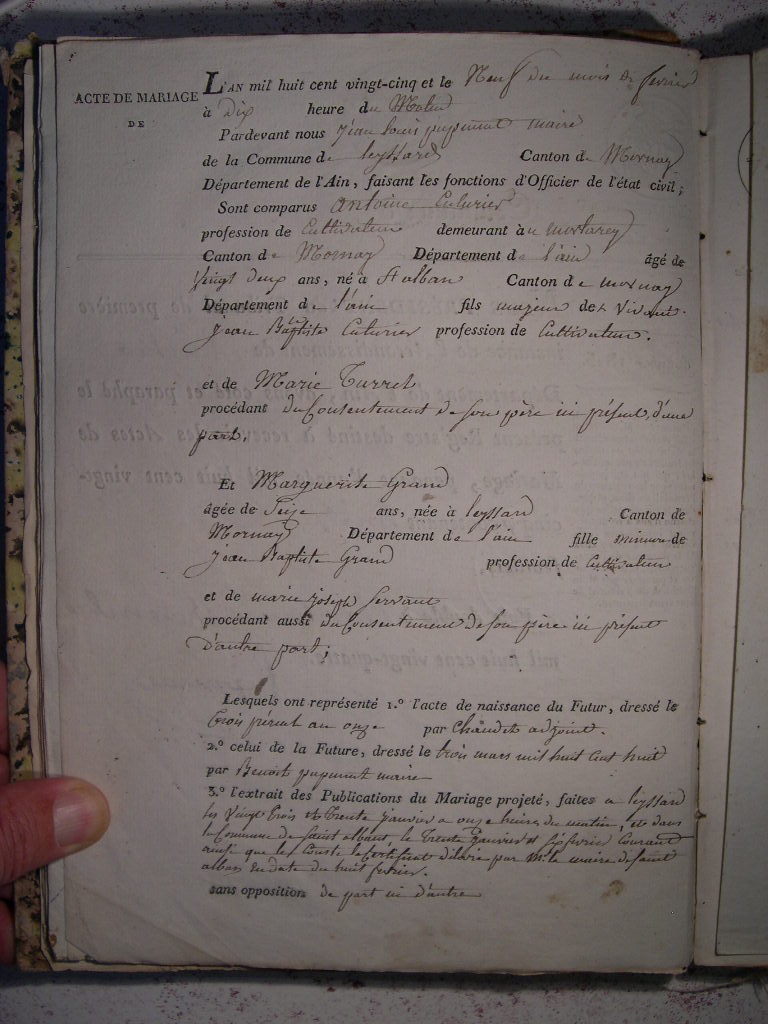 ACTE DE MARIAGE
DE
L'AN mil huit cent vingt-cinq et le Neuf du mois de fevrier
à Dix heure du Matin
Pardevant nous jean louis maire
de la Commune de leyssard Canton de Mornay
Département de l'Ain, faisant les fonctions d'Officier de l'état civil;
Sont comparus antoine Cuturier
profession de Cultivateur demeurant à
Canton de Mornay Département de l'ain âgé de
Vingt deux ans, né à St alban Canton de mornay
Département de l'ain fils majeur de Vivant
jean Baptiste Cuturier profession de Cultivateur.
et de Marie Turrel
procédant du Consentement de son père ici présent, d'une
part,
Et Marguerite Grand
âgée de Seize ans, née à leyssard Canton de
Mornay Département de l'ain fille mineure de
jean Baptiste Grand profession de Cultivateur
et de marie joseph Servant
procédant aussi du Consentement de son père ici présent
d'autre part;
Lesquels ont représenté 1.º l'acte de naissance du Futur, dressé le
trois an onze par adjoint.
2.º celui de la Future, dressé le trois mars mil huit Cent huit
par Benoit maire
3.º l'extrait des Publications du Mariage projeté, faites a leyssard
les Vingt trois et Trente janvier a onze heures du matin, et dans
la Commune de Saint alban le Trente janvier et Six fevrier Courant
ainsi que le Conste le Certificat délivré par Mr. le maire de Saint
alban En date du huit fevrier.
sans opposition de part ni d'autre